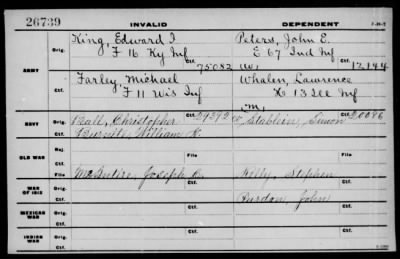 26739
INVALID DEPENDENT
ARMY
Orig. King, Edward I. Peters, John E.
F 16 Ky Inf E 67 Ind Inf
Ctf. 75082 W, Ctf. 12,144
Orig. Farley, Michael Whalen, Lawrence
F 11 Wis Inf K 13 Inf
Ctf. M, Ctf.
NAVY
Orig. Ball, Christopher Ctf. 29392 W, Simon Ctf. 20096
William Ctf.
OLD WAR
File File
WAR OF 1812
Orig. McEntire, Joseph Stephen
Ctf. Ctf.
MEXICAN WAR
Orig. Purdon, John
Ctf. Ctf.
INDIAN WAR
Orig.
Ctf. Ctf.